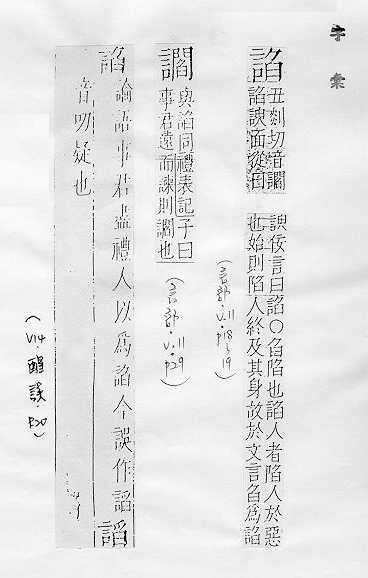 字彙
諂
丑剡切音讇
諂諛面從曰
諛佞言曰諂〇臽陷也諂人者陷人於惡
也始則陷人終及其身故於文言臽為諂
(言部.v.11
p18~19)
讇
與諂同禮表記子曰
事君遠而諫則讇也
(言部.v.11
p29)
諂
論語事君盡禮人以為諂今誤作謟
謟
音叨疑也
(V14.醒誤.p20)